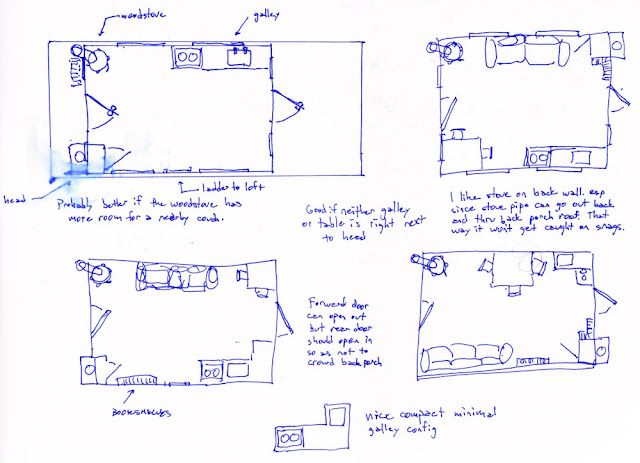 woodstove
galley
head
ladder to loft
Probably better if the woodstove has
more room for a nearby couch.
Good if neither galley
or table is right next
to head
I like stove on back wall. esp
since stove pipe can go out back
and thru back porch roof. That
way it won't get caught on snags.
Forward door
can open out
but rear door
should open in
so as not to
crowd back porch
BOOKSHELVES
nice compact minimal
galley config